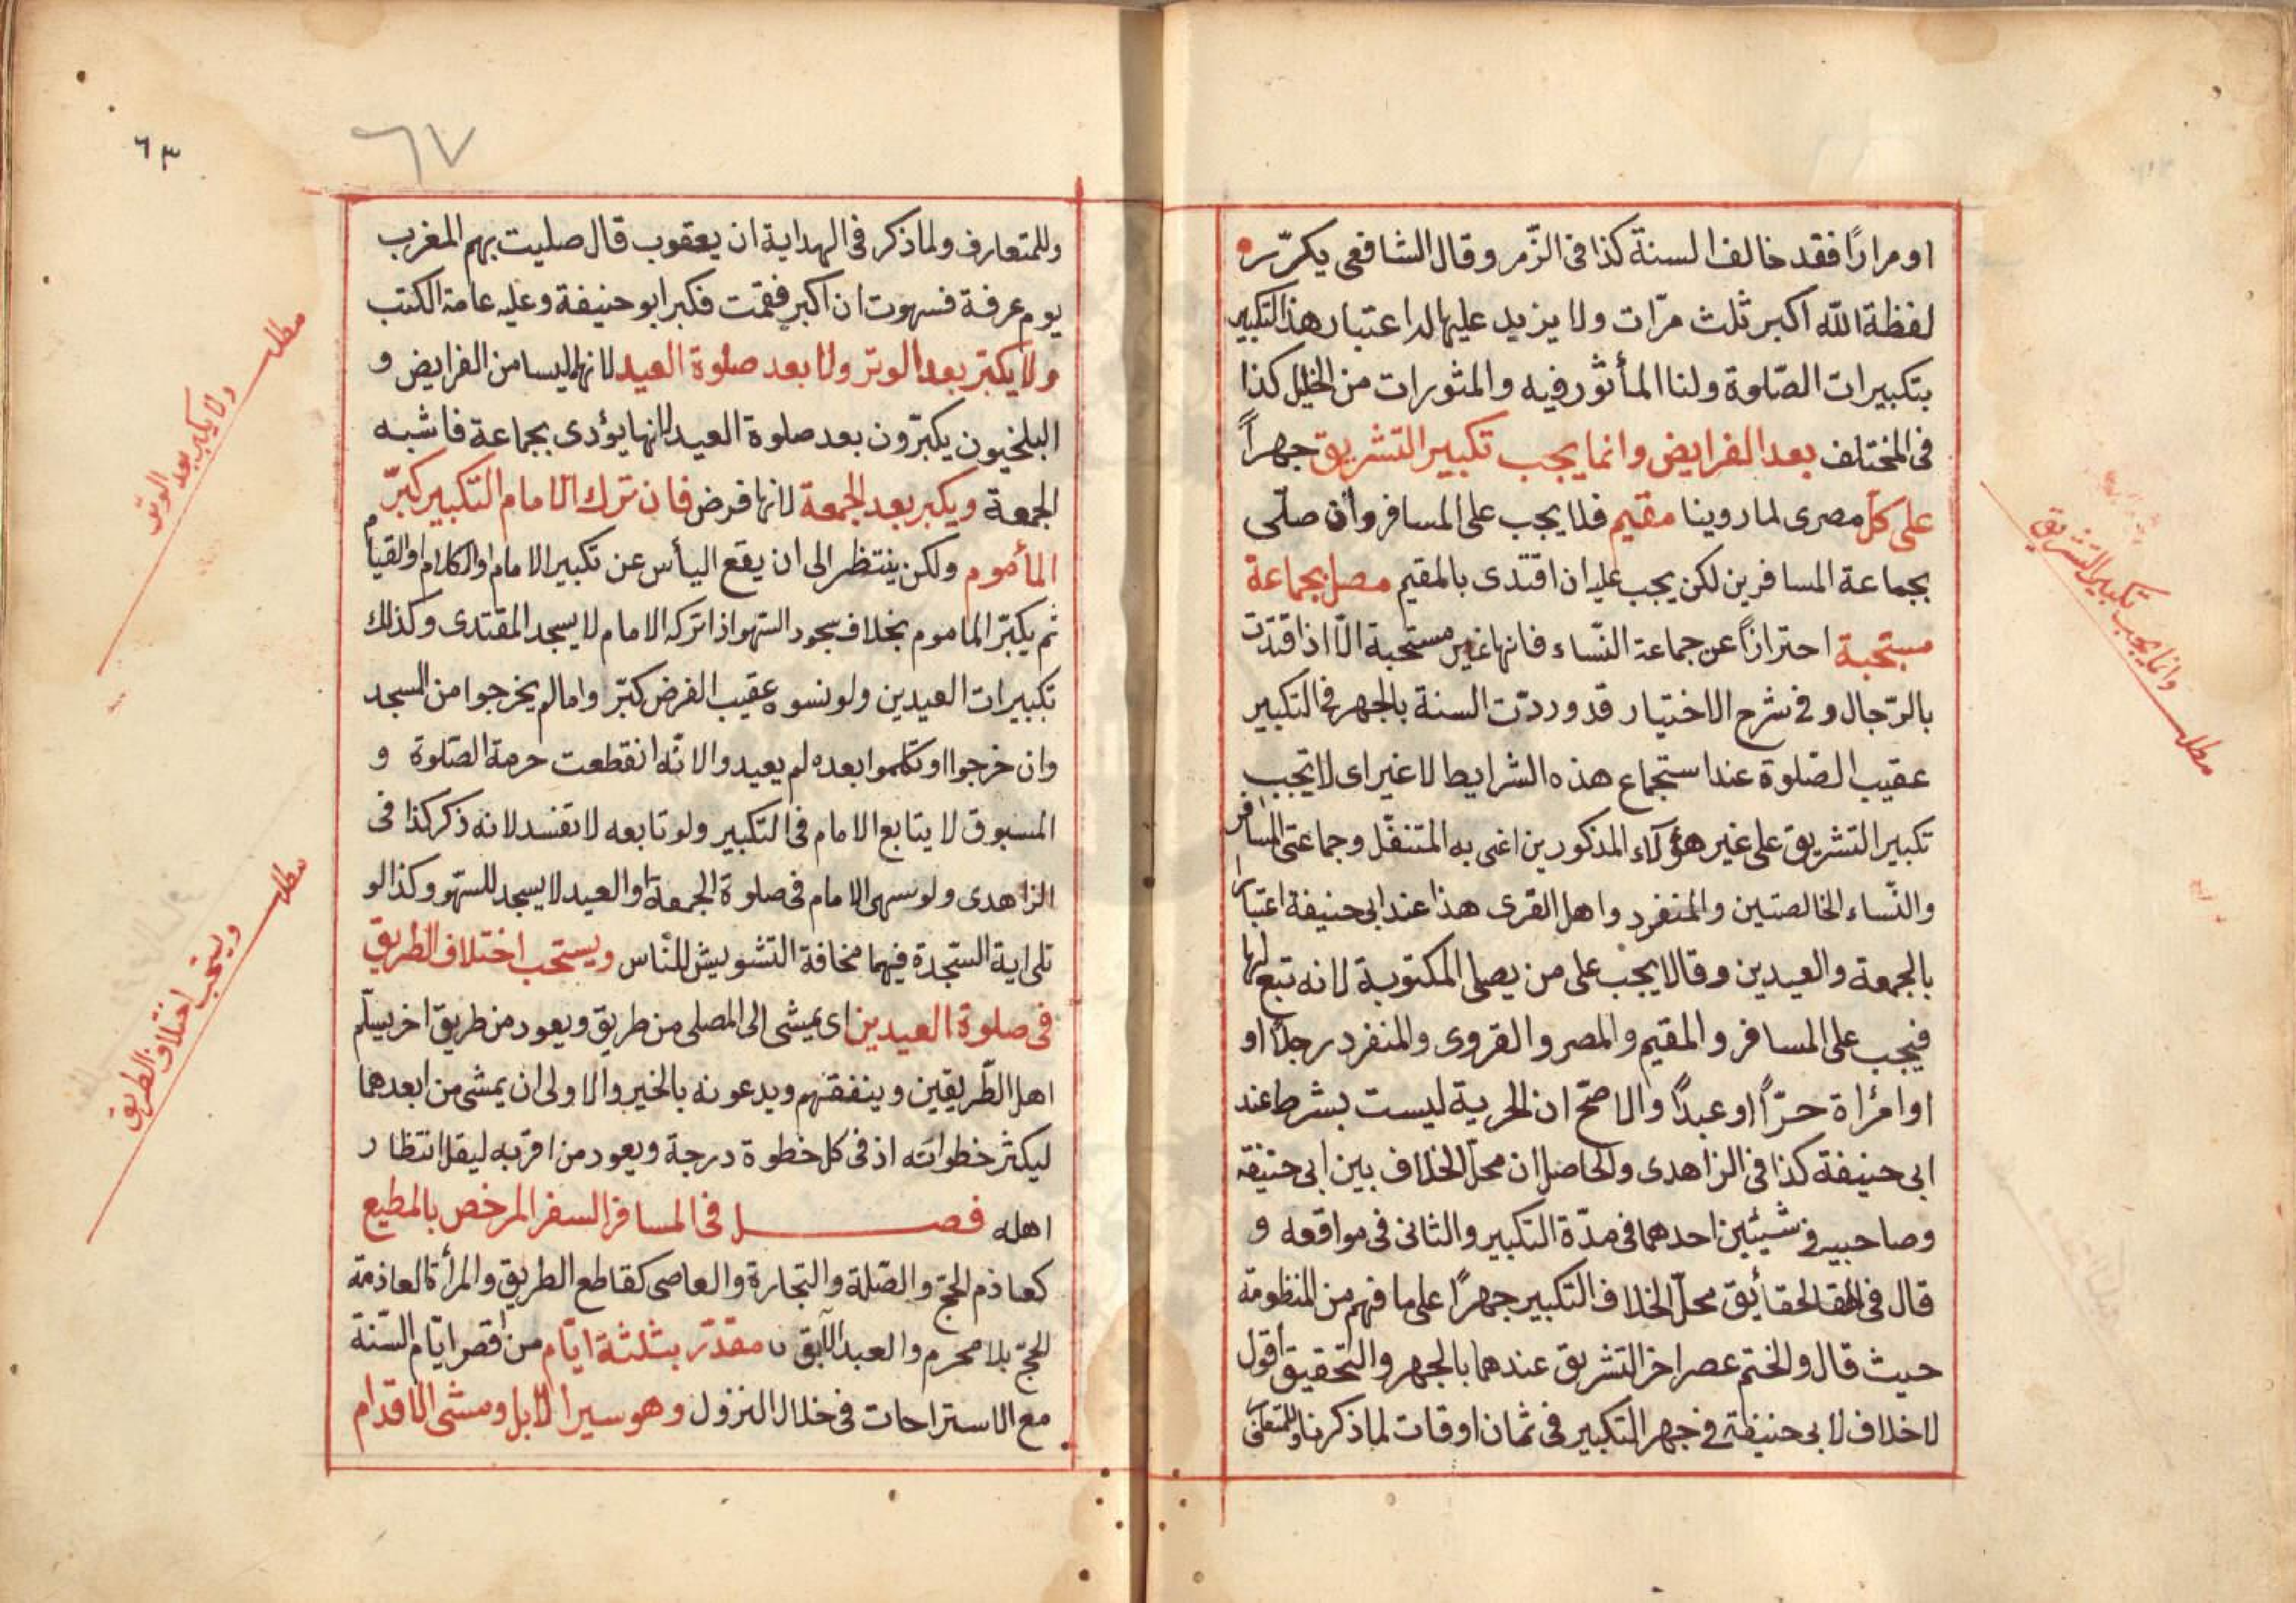 او مرارًا فقد خالف السنة كذا فى الزّمر وقال الشافعى يكرّر
لفظة الله اكبر ثلث مرّات ولا يزيد عليها له اعتبار هذا التكبير
بتكبيرات الصّلوة ولنا المأثور فيه والمثورات من الخليل كذا
فى المختلف بعد الفرايض وانما يجب تكبير التشريق جهراً
على كلّ مصرى لما روينا مقيم فلا يجب على المسافر وان صلّى
بجماعة المسافرين لكن يجب عليه ان اقتدى بالمقيم مصل بجماعة
مستحبة احترازاً عن جماعة النّساء فانها غير مستحبة الّا اذا اقتدت
بالرّجال و فى شرح الاختيار قد وردّت السنة بالجهر فى التكبير
عقيب الصّلوة عند استجماع هذه الشرايط لا غير اى لا تجب
تكبير التشريق على غير هؤلآء المذكورين اغنى به المتنفّل وجماعتى المسافر
والنّساء الخالصتين والمنفرد واهل القرى هذا عند ابى حنيفة اعتبارا
بالجمعة والعيدين وقالا يجب على من يصلى المكتوبة لانه تبع لها
فيجب على المسافر والمقيم والمصر والقروى والمنفرد رجلاً او
او امرأة حرّاً او عبدًا والاصحّ ان الحرية ليست بشرط عند
ابى حنيفة كذا فى الزاهدى والحاصل ان محلّ الخلاف بين ابى حنيفة
وصاحبيه فى شيئين احدهما فى مدّة التكبير والثانى فى مواقعه و
قال فى الحقايق محلّ الخلاف التكبير جهرًا على ما فهم من المنظومة
حيث قال والختم عصر اخر التشريق عندهما بالجهر والتحقيق اقول
لا خلاف لابى حنيفة فى جهر التكبير فى ثمان اوقات لما ذكرنا
مطلب
وانما يجب تكبير التشريق
٦٣
٦٧
وللمتعارف ولما ذكر فى الهداية ان يعقوب قال صليت بهم المغرب
يوم عرفة فسهوت ان اكبر فقمت فكبر ابو حنيفة وعليه عامة الكتب
ولا يكبّر بعد الوتر ولا بعد صلوة العيد لانهما ليسا من الفرايض و
البلخيون يكبّرون بعد صلوة العيد لانها يؤدى بجماعة فاشبه
الجمعة ويكبر بعد الجمعة لانها فرض فان ترك الامام التكبير كبّر
المأموم ولكن ينتظر الى ان يقع اليأس عن تكبير الامام او الكلام او القيام
ثم يكبّر الماموم بخلاف سجود السّهو اذا تركه الامام لا يسجد المقتدى وكذلك
تكبيرات العيدين ولو نسوه عقيب الفرض كبّر واما لم يخرجوا من المسجد
وان خرجوا او تكلموا بعده لم يعيدوا لانّه انقطعت حرمة الصّلوة و
المسبوق لا يتابع الامام فى التكبير ولو تابعه لا تفسد لانه ذكر كذا فى
الزاهدى ولو سهى الامام فى صلوة الجمعة او العيد لا يسجد للسّهو وكذا لو
تلى اية السّجدة فيهما مخافة التشويش للنّاس ويستحب اختلاف الطريق
فى صلوة العيدين اى يمشى الى المصلى من طريق ويعود من طريق اخر يسلّم
اهل الطّريقين وينفقهم ويدعونه بالخير والاولى ان يمشى من ابعدهما
ليكثر خطواته اذ فى كل خطوة درجة ويعود من اقربه ليقل انتظار
اهله فصل فى المسافر السفر المرخص بالمطيع
كعازم الحجّ والصّلة والتجارة والعاصى كقاطع الطريق والمرأة العازمة
للحجّ بلا محرم والعبد الآبق مقدّر بثلثة ايّام من اقصر ايّام السّنة
مع الاستراحات فى خلال النزول وهو سير الابل ومشى الاقدام
مطلب
ولا يكبر بعد الوتر
مطلب
ويستحب اختلاف الطريق